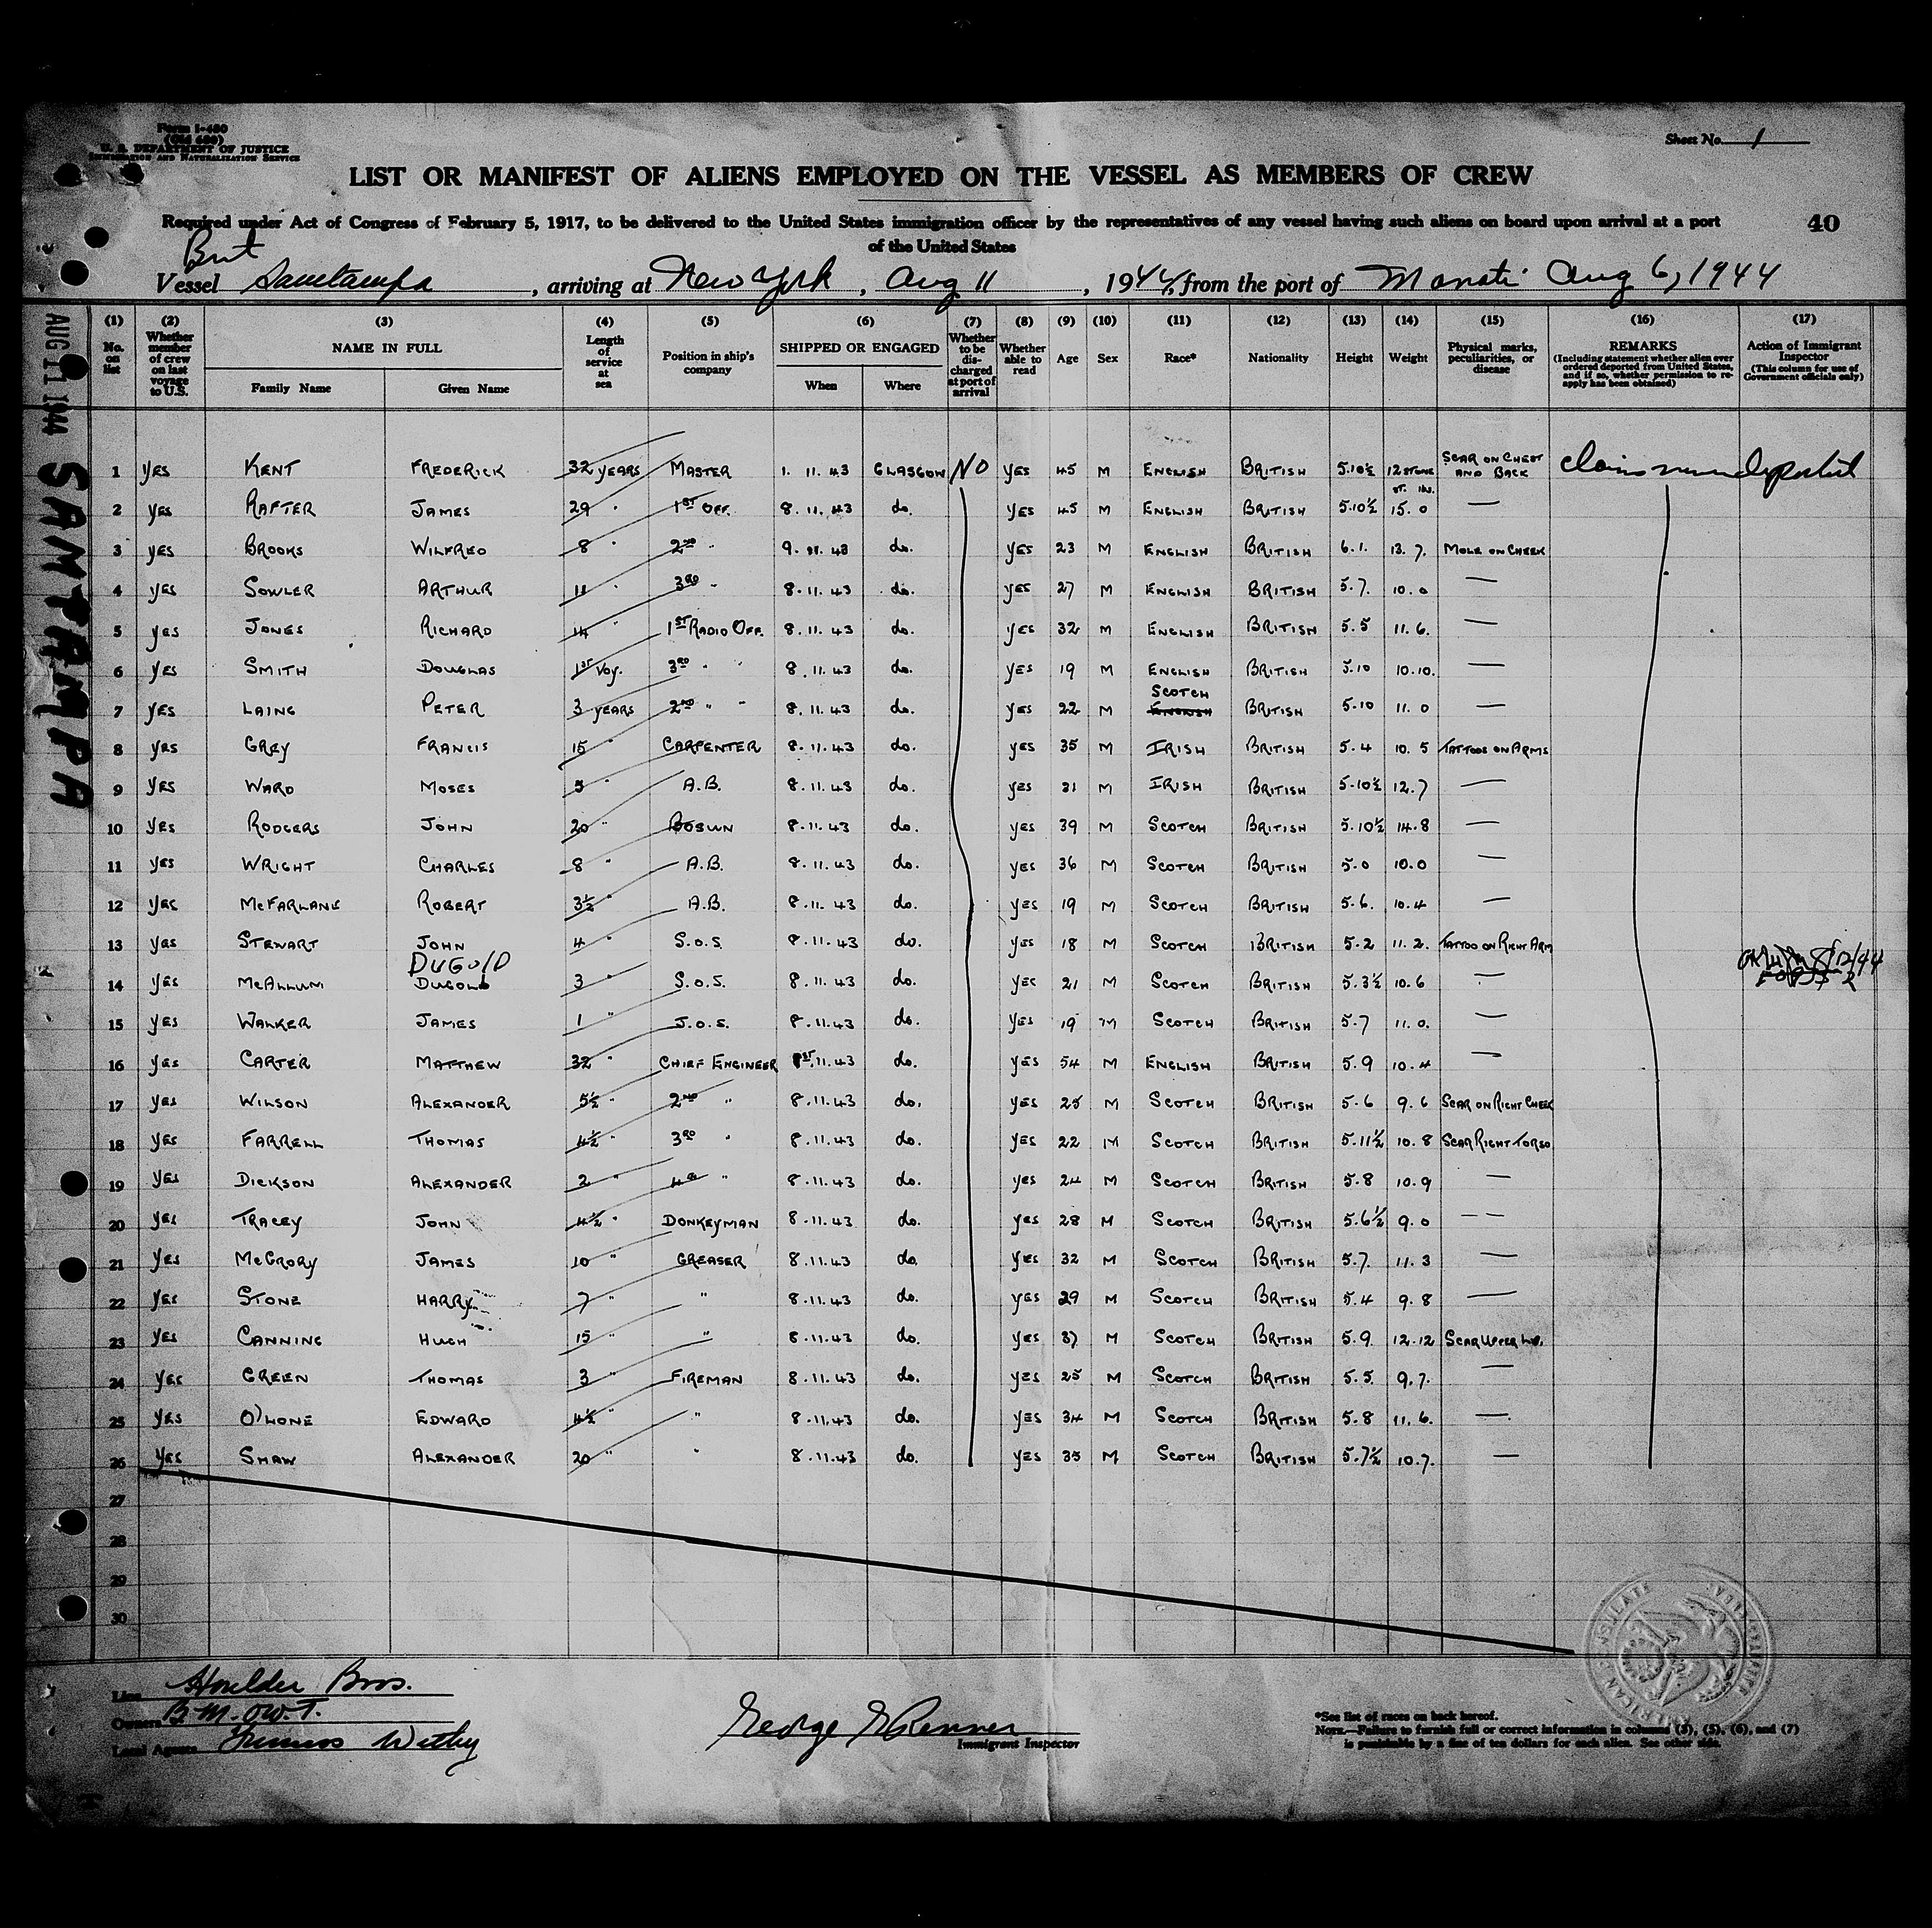 Form I-480
U. S. DEPARTMENT OF JUSTICE
IMMIGRATION AND NATURALIZATION SERVICE
Sheet No. 1
LIST OR MANIFEST OF ALIENS EMPLOYED ON THE VESSEL AS MEMBERS OF CREW
Required under Act of Congress of February 5, 1917, to be delivered to the United States immigration officer by the representatives of any vessel having such aliens on board upon arrival at a port
of the United States
40
Brit
Vessel Samtampa, arriving at New York, Aug 11, 1944, from the port of Manati Aug 6, 1944
AUG 11 1944 SAMTAMPA
(1) No. on list (2) Whether member of crew on last voyage to U.S. (3) NAME IN FULL Family Name Given Name (4) Length of service at sea (5) Position in ship's company (6) SHIPPED OR ENGAGED When Where (7) Whether to be discharged at port of arrival (8) Whether able to read (9) Age (10) Sex (11) Race* (12) Nationality (13) Height (14) Weight (15) Physical marks, peculiarities, or disease (16) REMARKS (Including statement whether alien ever ordered deported from United States, and if so, whether permission to reapply has been obtained) (17) Action of Immigrant Inspector (This column for use of Government officials only)
1 YES KENT FREDERICK 32 YEARS MASTER 1. 11. 43 GLASGOW NO YES 45 M ENGLISH BRITISH 5.10½ 12 STONE SCAR ON CHEST AND BACK claims never deported
st. lbs.
2 YES RAFTER JAMES 29 " 1ST OFF. 8. 11. 43 do. YES 45 M ENGLISH BRITISH 5.10½ 15. 0 —
3 YES BROOKS WILFRED 8 " 2ND " 9. 11. 43 do. YES 23 M ENGLISH BRITISH 6. 1. 13. 7. MOLE ON CHEEK
4 YES SOWLER ARTHUR 11 " 3RD " 8. 11. 43 do. YES 27 M ENGLISH BRITISH 5. 7. 10. 0 —
5 YES JONES RICHARD 14 " 1ST RADIO OFF. 8. 11. 43 do. YES 32 M ENGLISH BRITISH 5. 5 11. 6. —
6 YES SMITH DOUGLAS 1ST Voy. 3RD " " 8. 11. 43 do. YES 19 M ENGLISH BRITISH 5.10 10.10. —
7 YES LAING PETER 3 YEARS 2ND " " 8. 11. 43 do. YES 22 M SCOTCH ENGLISH BRITISH 5.10 11. 0 —
8 YES GREY FRANCIS 15 " CARPENTER 8. 11. 43 do. YES 35 M IRISH BRITISH 5. 4 10. 5 TATTOOS ON ARMS
9 YES WARD MOSES 5 " A.B. 8. 11. 43 do. YES 31 M IRISH BRITISH 5.10½ 12.7 —
10 YES RODGERS JOHN 20 " BOSUN 8. 11. 43 do. YES 39 M SCOTCH BRITISH 5.10½ 14.8 —
11 YES WRIGHT CHARLES 8 " A.B. 8. 11. 43 do. YES 36 M SCOTCH BRITISH 5.0 10.0 —
12 YES MCFARLANE ROBERT 3½ " A.B. 8. 11. 43 do. YES 19 M SCOTCH BRITISH 5.6. 10.4 —
13 YES STEWART JOHN 4 " S.O.S. 8. 11. 43 do. YES 18 M SCOTCH BRITISH 5.2 11. 2. TATTOO ON RIGHT ARM
DUGOLD
14 YES MCALLUM DUGOLD 3 " S.O.S. 8. 11. 43 do. YES 21 M SCOTCH BRITISH 5.3½ 10.6 —
15 YES WALKER JAMES 1 " J.O.S. 8. 11. 43 do. YES 19 M SCOTCH BRITISH 5.7 11. 0. —
16 YES CARTER MATTHEW 32 " CHIEF ENGINEER 1ST.11.43 do. YES 54 M ENGLISH BRITISH 5.9 10.4 —
17 YES WILSON ALEXANDER 5½ " 2ND " 8. 11. 43 do. YES 25 M SCOTCH BRITISH 5.6 9.6 SCAR ON RIGHT CHEEK
18 YES FARRELL THOMAS 4½ " 3RD " 8. 11. 43 do. YES 22 M SCOTCH BRITISH 5.11½ 10. 8 SCAR RIGHT TORSO
19 YES DICKSON ALEXANDER 2 " 4TH " 8. 11. 43 do. YES 24 M SCOTCH BRITISH 5.8 10.9 —
20 YES TRACEY JOHN 4½ " DONKEYMAN 8. 11. 43 do. YES 28 M SCOTCH BRITISH 5.6½ 9. 0 — —
21 YES MCGRORY JAMES 10 " GREASER 8. 11. 43 do. YES 32 M SCOTCH BRITISH 5.7. 11. 3 —
22 YES STONE HARRY 7 " " 8. 11. 43 do. YES 29 M SCOTCH BRITISH 5.4 9. 8 —
23 YES CANNING HUGH 15 " " 8. 11. 43 do. YES 37 M SCOTCH BRITISH 5.9. 12.12 SCAR UPPER LIP.
24 YES GREEN THOMAS 3 " FIREMAN 8. 11. 43 do. YES 25 M SCOTCH BRITISH 5.5. 9.7. —
25 YES O'HONE EDWARD 4½ " " 8. 11. 43 do. YES 34 M SCOTCH BRITISH 5.8 11. 6. —
26 YES SHAW ALEXANDER 20 " " 8. 11. 43 do. YES 35 M SCOTCH BRITISH 5.7½ 10.7. —
27
28
29
30
Line Houlder Bros.
Owners B.M.O.W.T.
Local Agents Furness Withy
George Renner
Immigrant Inspector
*See list of races on back hereof.
NOTE.—Failure to furnish full or correct information in columns (3), (5), (6), and (7)
is punishable by a fine of ten dollars for each alien. See other side.
AMERICAN CONSULATE